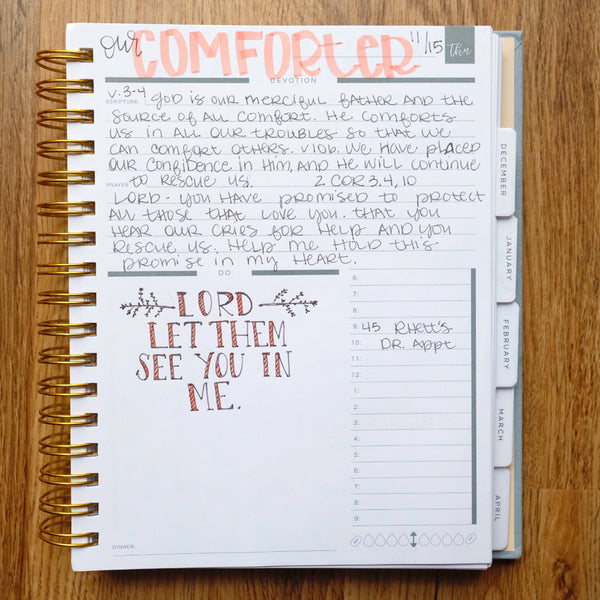 our COMFORTER 11/15 thu
DEVOTION
SCRIPTURE
v. 3-4 God is our merciful father and the
source of all comfort. He comforts
us in all our troubles so that we
can comfort others. v 10b. We have placed
our confidence in Him, and He will continue
to rescue us. 2 Cor 3,4,10
PRAYER
Lord - you have promised to protect
all those that love you. That you
hear our cries for help and you
rescue us. Help me hold this
promise in my heart.
DO
LORD
LET THEM
SEE YOU IN
ME.
6:
7:
8:
9: 45 Rhett's
10: Dr. Appt
11:
12:
1:
2:
3:
4:
5:
6:
7:
8:
9:
DINNER:
DECEMBER
JANUARY
FEBRUARY
MARCH
APRIL